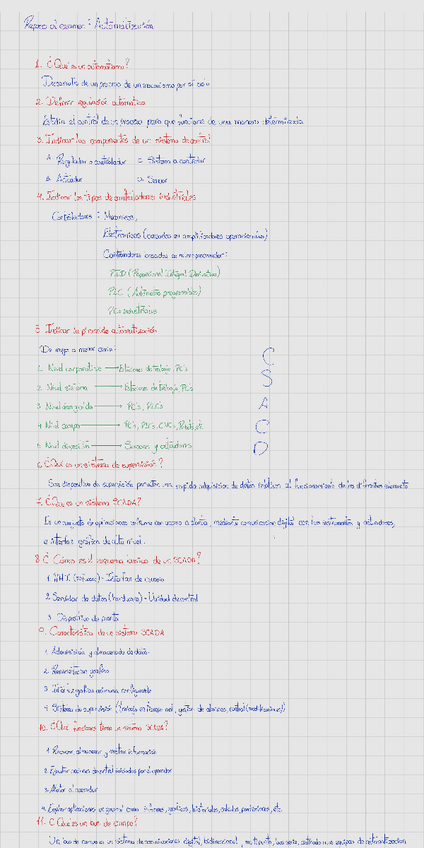 Repaso al examen: Automatización
1. ¿Qué es un automatismo?
Desarrollo de un proceso de un mecanismo por sí solo
2. Definir regulación automática
control de un proceso para que funcione de una manera determinada
3. Indicar los componentes de un sistema de control
A. Regulador o controlador C. Sistema a controlar
B. Actuador D. Sensor
4. Indicar los tipos de controladores industriales
Controladores: Mecánicos,
Electrónicos (basados en amplificadores operacionales)
Controladores basados en microprocesador:
PID (Proporcional Integral Derivativo)
PLC (Autómatas programables)
PCs industriales
5. Indicar la pirámide automatización
De mayor a menor
1. Nivel corporativo → Estaciones de trabajo, PC's
2. Nivel sistema → Estaciones de trabajo, PC's
3. Nivel → PC's, PLC's
4. Nivel campo → PC's, PLC's, CNC's,
5. Nivel → Sensores y actuadores
C
S
A
C
D
6. ¿Qué es un sistema de supervisión?
Son dispositivos de supervisión permiten una rápida adquisición de datos relativos al funcionamiento de los diferentes elementos
7. ¿Qué es un sistema SCADA?
Es un conjunto de aplicaciones software con acceso a planta, mediante comunicación digital con los instrumentos y actuadores,
e interfaz gráfica de alto nivel.
8. ¿Cómo es el esquema básico de un SCADA?
1. HMI (software) - Interfaz de usuario
2. Servidor de datos (hardware) - Unidad de control
3. Dispositivo de planta
9. Características de un sistema SCADA
1. Adquisición y almacenado de datos
2. Representación gráfica
3.
4. Sistema de supervisión ( tiempo real, gestión de alarmas, control (modificaciones))
10. ¿Qué funciones tiene un sistema SCADA?
1. almacenar y mostrar información
2. Ejecutar acciones de control iniciadas por el operador
3. Alertar al operador
4. aplicaciones en general como informes, gráficos, historiales, cálculos, predicciones, etc.
11. ¿Qué es un bus de campo?
Un bus de campo es un sistema de comunicaciones digital, bidireccional, multipunto,